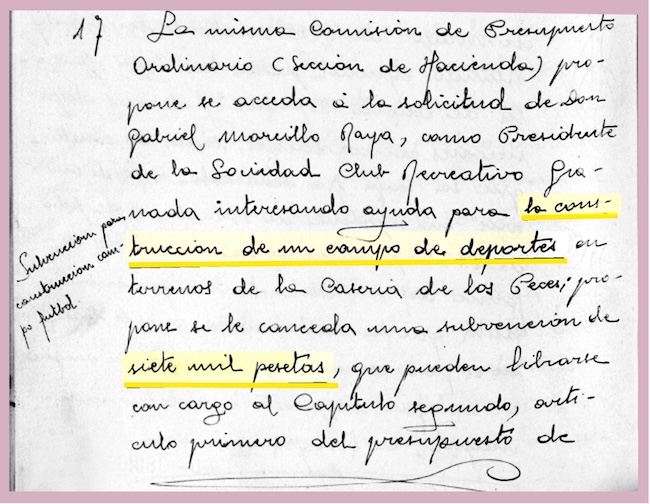 17 La misma Comisión de Presupuesto
Ordinario (Sección de Hacienda) pro-
pone se acceda á la solicitud de Don
Gabriel Morcillo Raya, como Presidente
de la Sociedad Club Recreativo Gra-
nada interesando ayuda para la cons-
trucción de un campo de deportes en
terrenos de la Caseria de los Peces; pro-
pone se le conceda una subvención de
siete mil pesetas, que pueden librarse
con cargo al Capitulo segundo, arti-
culo primero del presupuesto de
Subvención para
construcion cam-
po futbol.